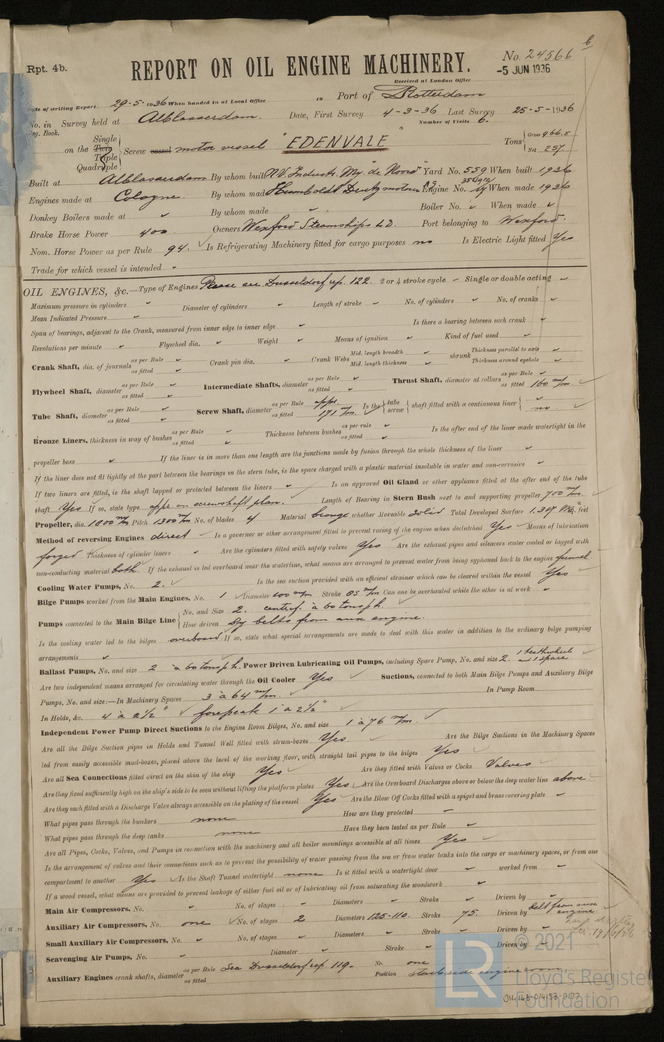 6
Rpt. 4b.
REPORT ON OIL ENGINE MACHINERY.
No. 24566
Received at London Office -5 JUN 1936
Date of writing Report 29-5-1936 When handed in at Local Office in Port of Rotterdam
No. in Survey held at Alblasserdam. Date, First Survey 4-3-36 Last Survey 25-5-1936
Reg. Book. Number of Visits 6.
on the Single Twin Triple Quadruple Screw vessel motor vessel "EDENVALE" Tons Gross 466.5 Net 257.
Built at Alblasserdam By whom built N.V. Industr. My. "de Noord" Yard No. 559 When built 1936
Engines made at Cologne. By whom made Humboldt Deutzmotoren Engine No. When made 1936
Donkey Boilers made at ✓ By whom made ✓ Boiler No. ✓ When made ✓
Brake Horse Power 400 Owners Wexford Steamships Ld. Port belonging to Wexford.
Nom. Horse Power as per Rule 94. Is Refrigerating Machinery fitted for cargo purposes no Is Electric Light fitted Yes
Trade for which vessel is intended -
OIL ENGINES, &c.—Type of Engines Please see Dusseldorf rep. 122. 2 or 4 stroke cycle Single or double acting
Maximum pressure in cylinders Diameter of cylinders Length of stroke No. of cylinders No. of cranks
Mean Indicated Pressure
Span of bearings, adjacent to the Crank, measured from inner edge to inner edge Is there a bearing between each crank
Revolutions per minute Flywheel dia. Weight Means of ignition Kind of fuel used
Crank Shaft, dia. of journals as per Rule as fitted Crank pin dia. Crank Webs Mid. length breadth Mid. length thickness shrunk Thickness parallel to axis Thickness around eyehole
Flywheel Shaft, diameter as per Rule as fitted Intermediate Shafts, diameter as per Rule as fitted Thrust Shaft, diameter at collars as per Rule as fitted 160 m/m
Tube Shaft, diameter as per Rule as fitted Screw Shaft, diameter as per Rule appr. as fitted 171 m/m. Is the tube screw shaft fitted with a continuous liner no
Bronze Liners, thickness in way of bushes as per Rule as fitted Thickness between bushes as per rule as fitted Is the after end of the liner made watertight in the
propeller boss If the liner is in more than one length are the junctions made by fusion through the whole thickness of the liner
If the liner does not fit tightly at the part between the bearings in the stern tube, is the space charged with a plastic material insoluble in water and non-corrosive
If two liners are fitted, is the shaft lapped or protected between the liners Is an approved Oil Gland or other appliance fitted at the after end of the tube
shaft Yes If so, state type appr. on screwshaft plan. Length of Bearing in Stern Bush next to and supporting propeller 700 m/m.
Propeller, dia. 1800 m/m Pitch 1300 m/m No. of blades 4 Material bronze whether Moveable Solid Total Developed Surface 1.307 M2. feet
Method of reversing Engines direct Is a governor or other arrangement fitted to prevent racing of the engine when declutched Yes Means of lubrication
forced Thickness of cylinder liners Are the cylinders fitted with safety valves Yes Are the exhaust pipes and silencers water cooled or lagged with
non-conducting material both If the exhaust is led overboard near the waterline, what means are arranged to prevent water from being syphoned back to the engine funnel
Cooling Water Pumps, No. 2. Is the sea suction provided with an efficient strainer which can be cleared within the vessel Yes
Bilge Pumps worked from the Main Engines, No. 1 Diameter 100 m/m Stroke 85 m/m Can one be overhauled while the other is at work
Pumps connected to the Main Bilge Line No. and Size 2. centrif. à 60 tons p.h. How driven by belts from aux engine.
Is the cooling water led to the bilges overboard. If so, state what special arrangements are made to deal with this water in addition to the ordinary bilge pumping
arrangements
Ballast Pumps, No. and size 2 à 60 tons p.h. Power Driven Lubricating Oil Pumps, including Spare Pump, No. and size 2.
Are two independent means arranged for circulating water through the Oil Cooler Yes Suctions, connected to both Main Bilge Pumps and Auxiliary Bilge
Pumps, No. and size:—In Machinery Spaces 3 à 64 m/m. In Pump Room
In Holds, &c. 4 à 2½" forepeak 1 à 2½"
Independent Power Pump Direct Suctions to the Engine Room Bilges, No. and size 1 à 76 m/m.
Are all the Bilge Suction pipes in Holds and Tunnel Well fitted with strum-boxes Yes Are the Bilge Suctions in the Machinery Spaces
led from easily accessible mud-boxes, placed above the level of the working floor, with straight tail pipes to the bilges Yes
Are all Sea Connections fitted direct on the skin of the ship Yes Are they fitted with Valves or Cocks Valves
Are they fixed sufficiently high on the ship's side to be seen without lifting the platform plates Yes Are the Overboard Discharges above or below the deep water line above
Are they each fitted with a Discharge Valve always accessible on the plating of the vessel Yes Are the Blow Off Cocks fitted with a spigot and brass covering plate
What pipes pass through the bunkers none How are they protected
What pipes pass through the deep tanks none Have they been tested as per Rule
Are all Pipes, Cocks, Valves, and Pumps in connection with the machinery and all boiler mountings accessible at all times Yes
Is the arrangement of valves and their connections such as to prevent the possibility of water passing from the sea or from water tanks into the cargo or machinery spaces, or from one
compartment to another Yes Is the Shaft Tunnel watertight none Is it fitted with a watertight door worked from
If a wood vessel, what means are provided to prevent leakage of either fuel oil or of lubricating oil from saturating the woodwork
Main Air Compressors, No. No. of stages Diameters Stroke Driven by
Auxiliary Air Compressors, No. one No. of stages 2 Diameters 125-110. Stroke 75. Driven by belt from aux engine
Small Auxiliary Air Compressors, No. No. of stages Diameters Stroke Driven by
Scavenging Air Pumps, No. Diameter Stroke Driven by
Auxiliary Engines crank shafts, diameter as per Rule as fitted See Dusseldorf rep. 119. No. one Position starboard engine room
© 2021
LR
Lloyd's Register
Foundation